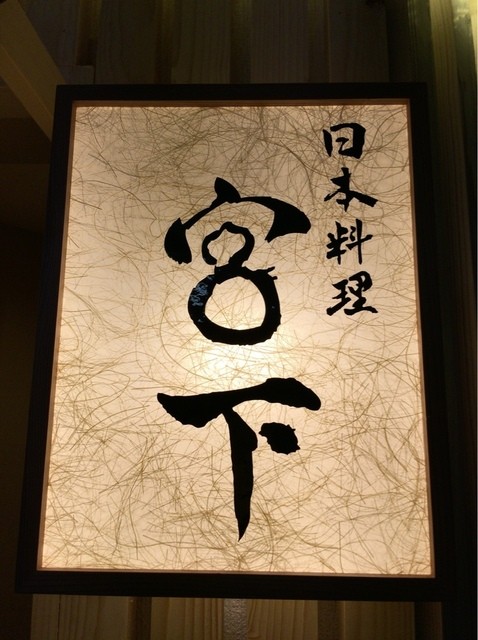 日本料理
宮下